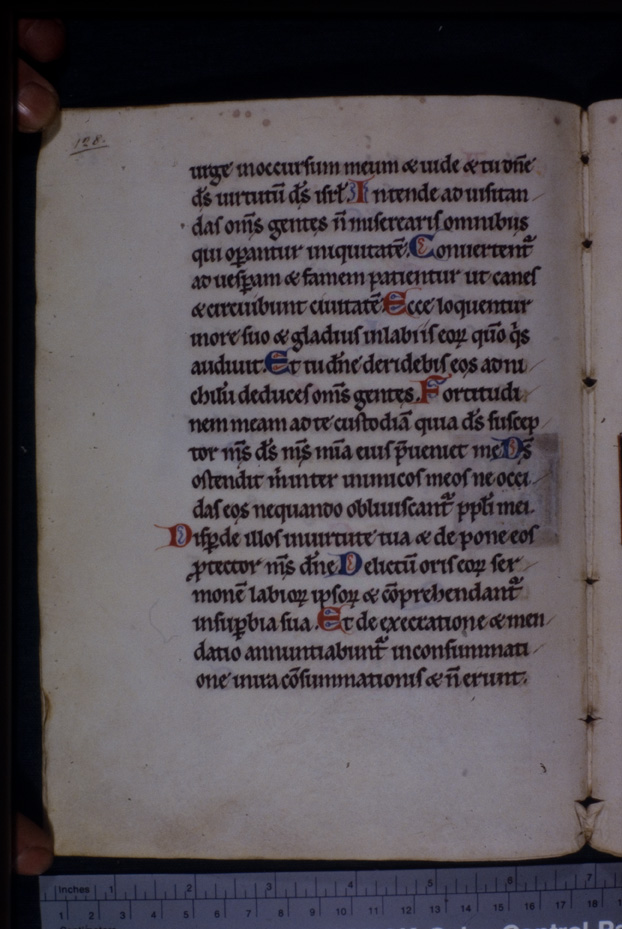 128.
urge in occursum meum & uide & tu dñe
d̄s uirtutū d̄s isrł. Intende ad uisitan
das om̄s gentes n̄ miserearis omnibus
qui oꝑantur iniquitatē. Conuertent᷑
ad uesꝑam & famem patientur ut canes
& circuibunt ciuitatē. Ecce loquentur
in ore suo & gladius in labiis eoꝝ qm̄o q̄s
audiuit. Et tu dñe deridebis eos ad ni
chilū deduces om̄s gentes. Fortitudi
nem meam ad te custodiā quia d̄s suscep
tor m̄s d̄s m̄s mīa eius p̄ueniet me. D̄s
ostendit m̄ inter inimicos meos ne occi
das eos nequando obliuiscant᷑ ppłi mei.
Disꝑde illos in uirtute tua & depone eos
ꝓtector m̄s dñe. Delictū oris eoꝝ ser
monē labioꝝ ipsoꝝ & cōprehendant᷑
in suꝑbia sua. Et de execratione & men
datio annuntiabunt᷑ in consummati
one in ira cōsummationis & n̄ erunt.
Inches 1 2 3 4 5 6 7
1 2 3 4 5 6 7 8 9 10 11 12 13 14 15 16 17 18